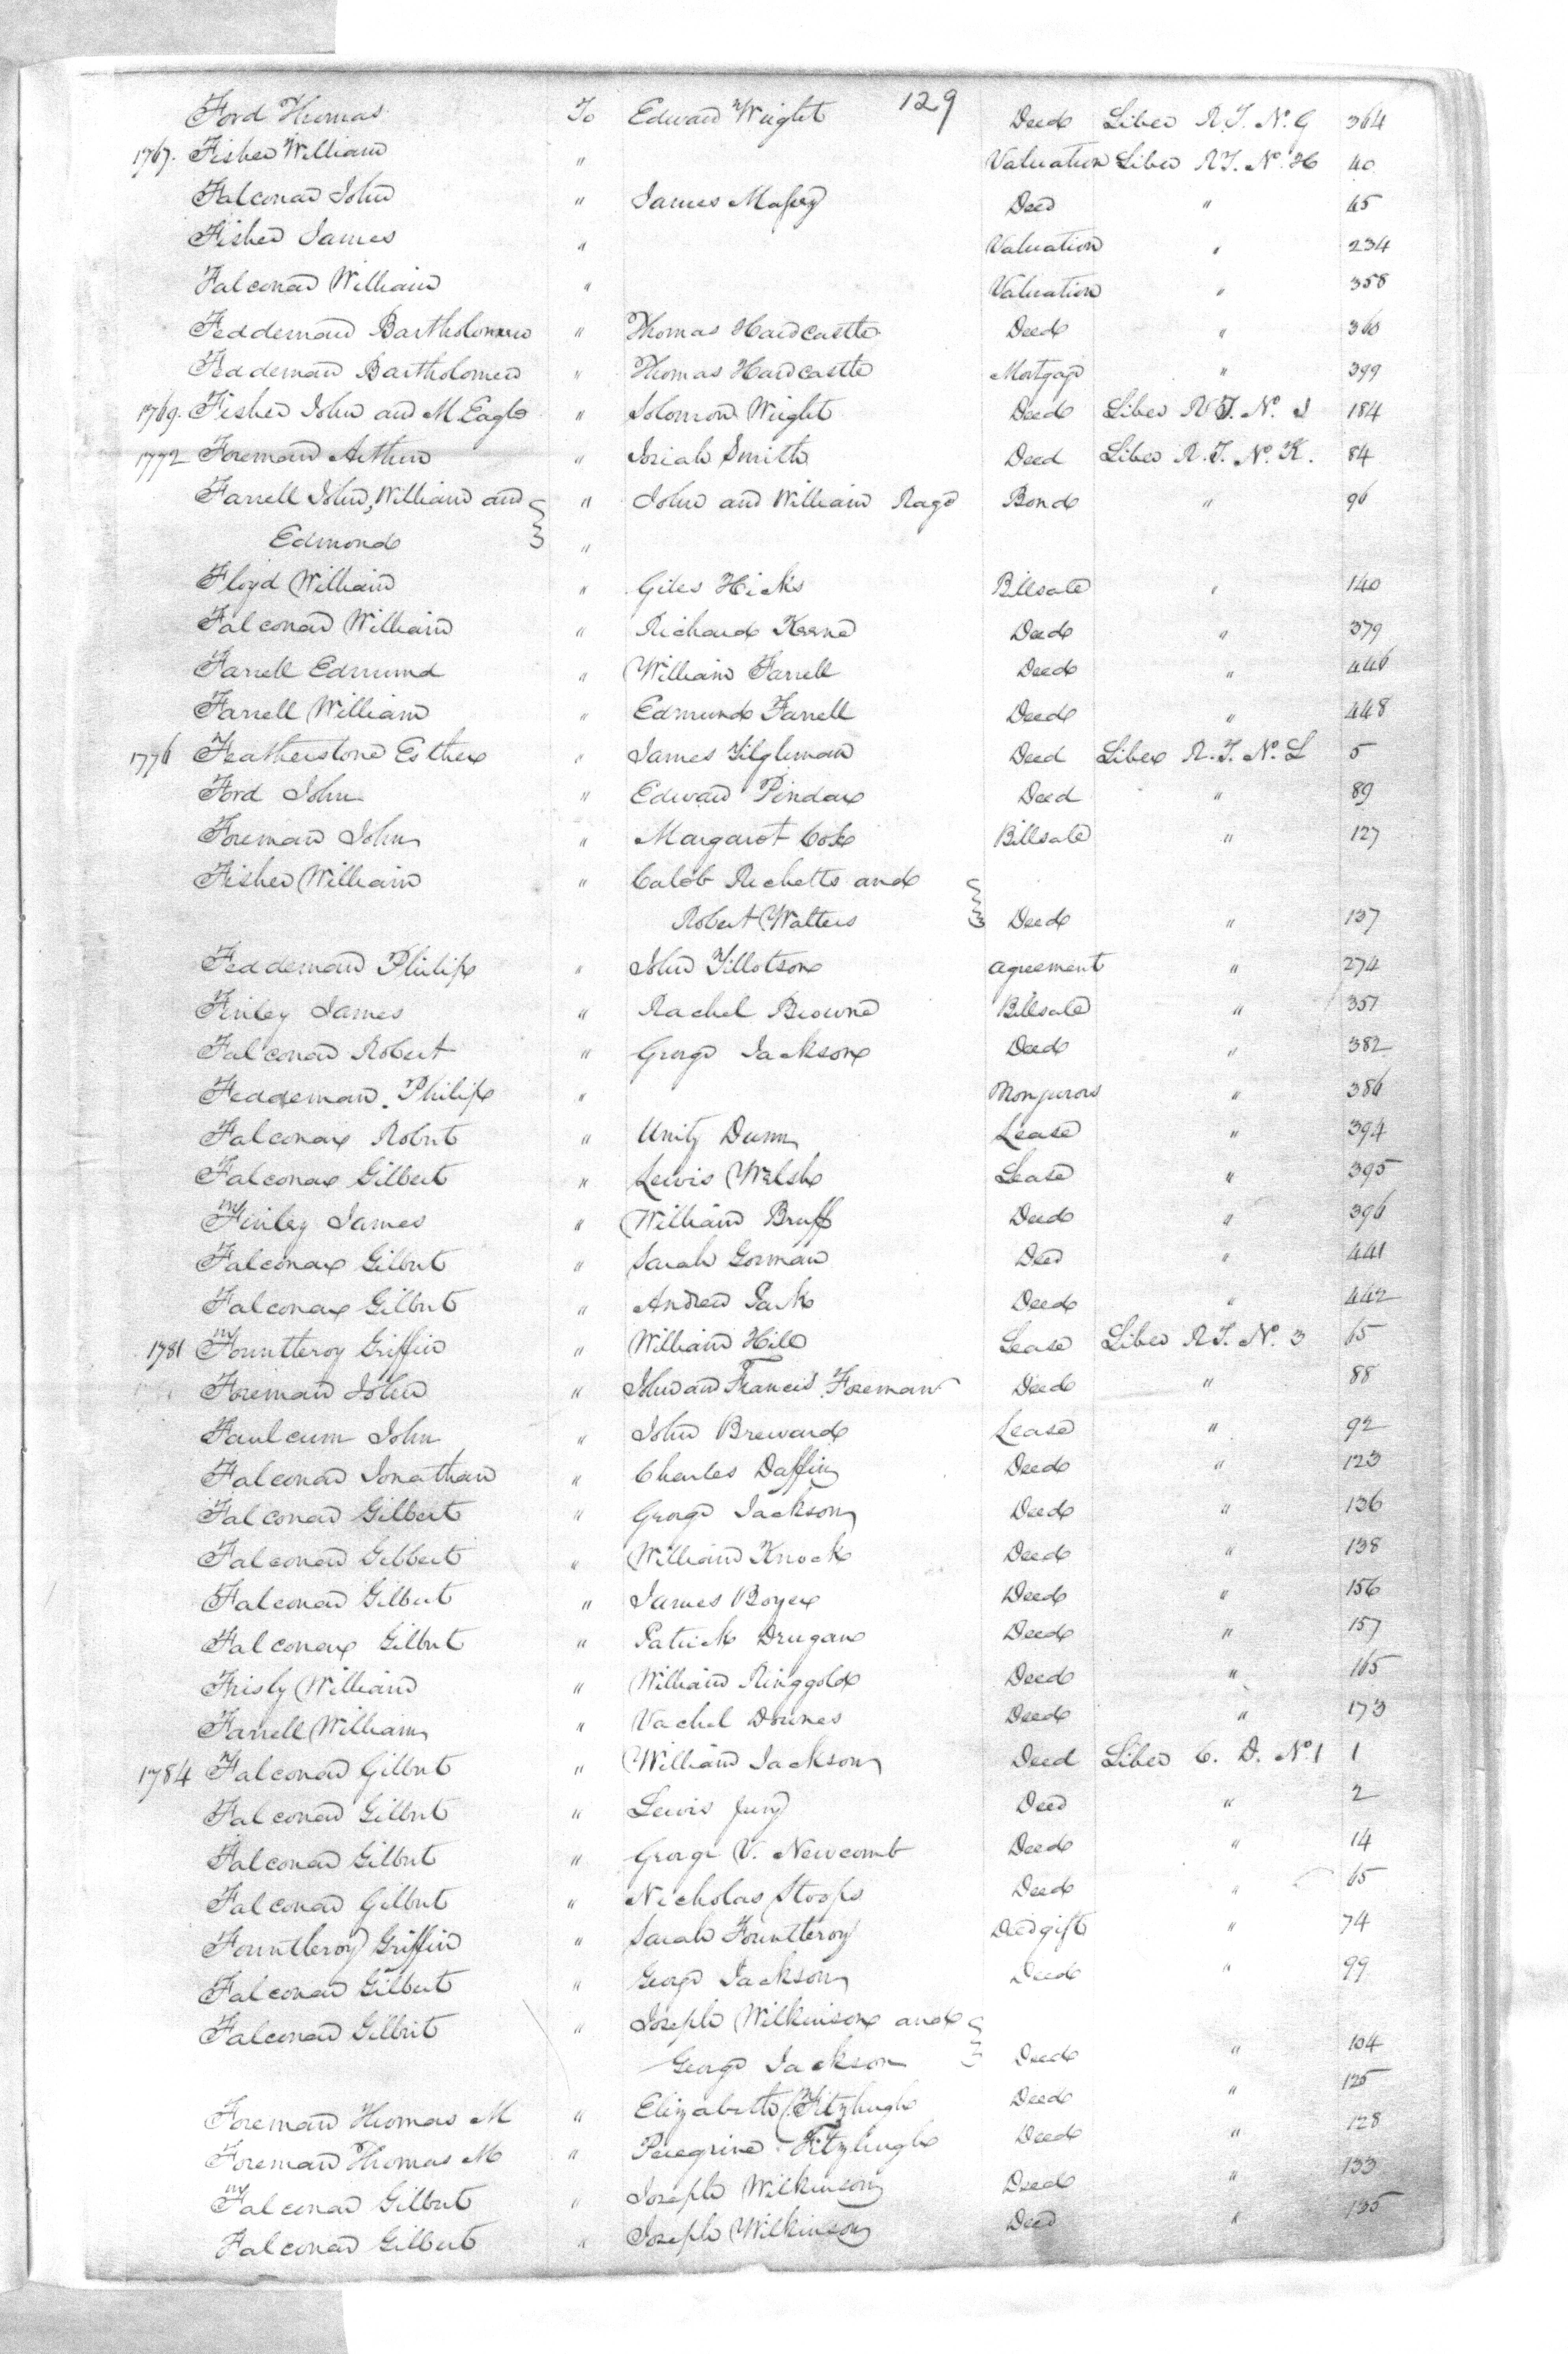 129
Ford Thomas To Edward Wright Deed Liber R.T. No. G 364
1767. Fisher William " Valuation Liber R.T. No. H 40
Falconar John " James Massey Deed " 45
Fisher James " Valuation " 234
Falconar William " Valuation " 358
Feddeman Bartholomew " Thomas Hardcastle Deed " 360
Feddeman Bartholomew " Thomas Hardcastle Mortgage " 399
1769. Fisher John and M Eagle " Solomon Wright Deed Liber R.T. No. I 184
1772 Foreman Arthur " Josiah Smith Deed Liber R.T. No. K. 84
Farrell John, William and " John and William Rage Bond " 96
Edmond "
Floyd William " Giles Hicks Billsale " 140
Falconar William " Richard Keene Deed " 379
Farrell Edmund " William Farrell Deed " 446
Farrell William " Edmund Farrell Deed " 448
1776 Featherstone Esther " James Tilghman Deed Liber R.T. No. L 5
Ford John " Edward Pindar Deed " 89
Foreman John " Margaret Cox Billsale " 127
Fisher William " Caleb Ricketts and
Robert Walters Deed " 137
Feddeman Philip " John Tillotson Agreement " 274
Finley James " Rachel Browne Billsale " 351
Falconar Robert " George Jackson Deed " 382
Feddeman Philip " " 386
Falconar Robert " Unity Dunn Lease " 394
Falconar Gilbert " Lewis Welsh Lease " 395
Finley James " William Bruff Deed " 396
Falconar Gilbert " Sarah Gorman Deed " 441
Falconar Gilbert " Andrew Jack Deed " 442
1781 Fountleroy Griffin " William Hill Lease Liber R.T. No. 3 65
Foreman John " John and Francis Foreman Deed " 88
Faulcum John " John Breward Lease " 92
Falconar Jonathan " Charles Daffin Deed " 123
Falconar Gilbert " George Jackson Deed " 136
Falconar Gilbert " William Knock Deed " 138
Falconar Gilbert " James Boyer Deed " 156
Falconar Gilbert " Patrick Drugan Deed " 157
Frisby William " William Ringgold Deed " 165
Farrell William " Vachel Downes Deed " 173
1784 Falconar Gilbert " William Jackson Deed Liber C. D. No. 1 1
Falconar Gilbert " Lewis Deed " 2
Falconar Gilbert " George V. Newcomb Deed " 14
Falconar Gilbert " Nicholas Stoops Deed " 65
Fountleroy Griffin " Sarah Fountleroy Deedgift " 74
Falconar Gilbert " George Jackson Deed " 99
Falconar Gilbert " Joseph Wilkinson and
George Jackson Deed " 104
Foreman Thomas M " Elizabeth Fitzhugh Deed " 125
Foreman Thomas M " Peregrine Fitzhugh Deed " 128
Falconar Gilbert " Joseph Wilkinson Deed " 133
Falconar Gilbert " Joseph Wilkinson Deed " 135